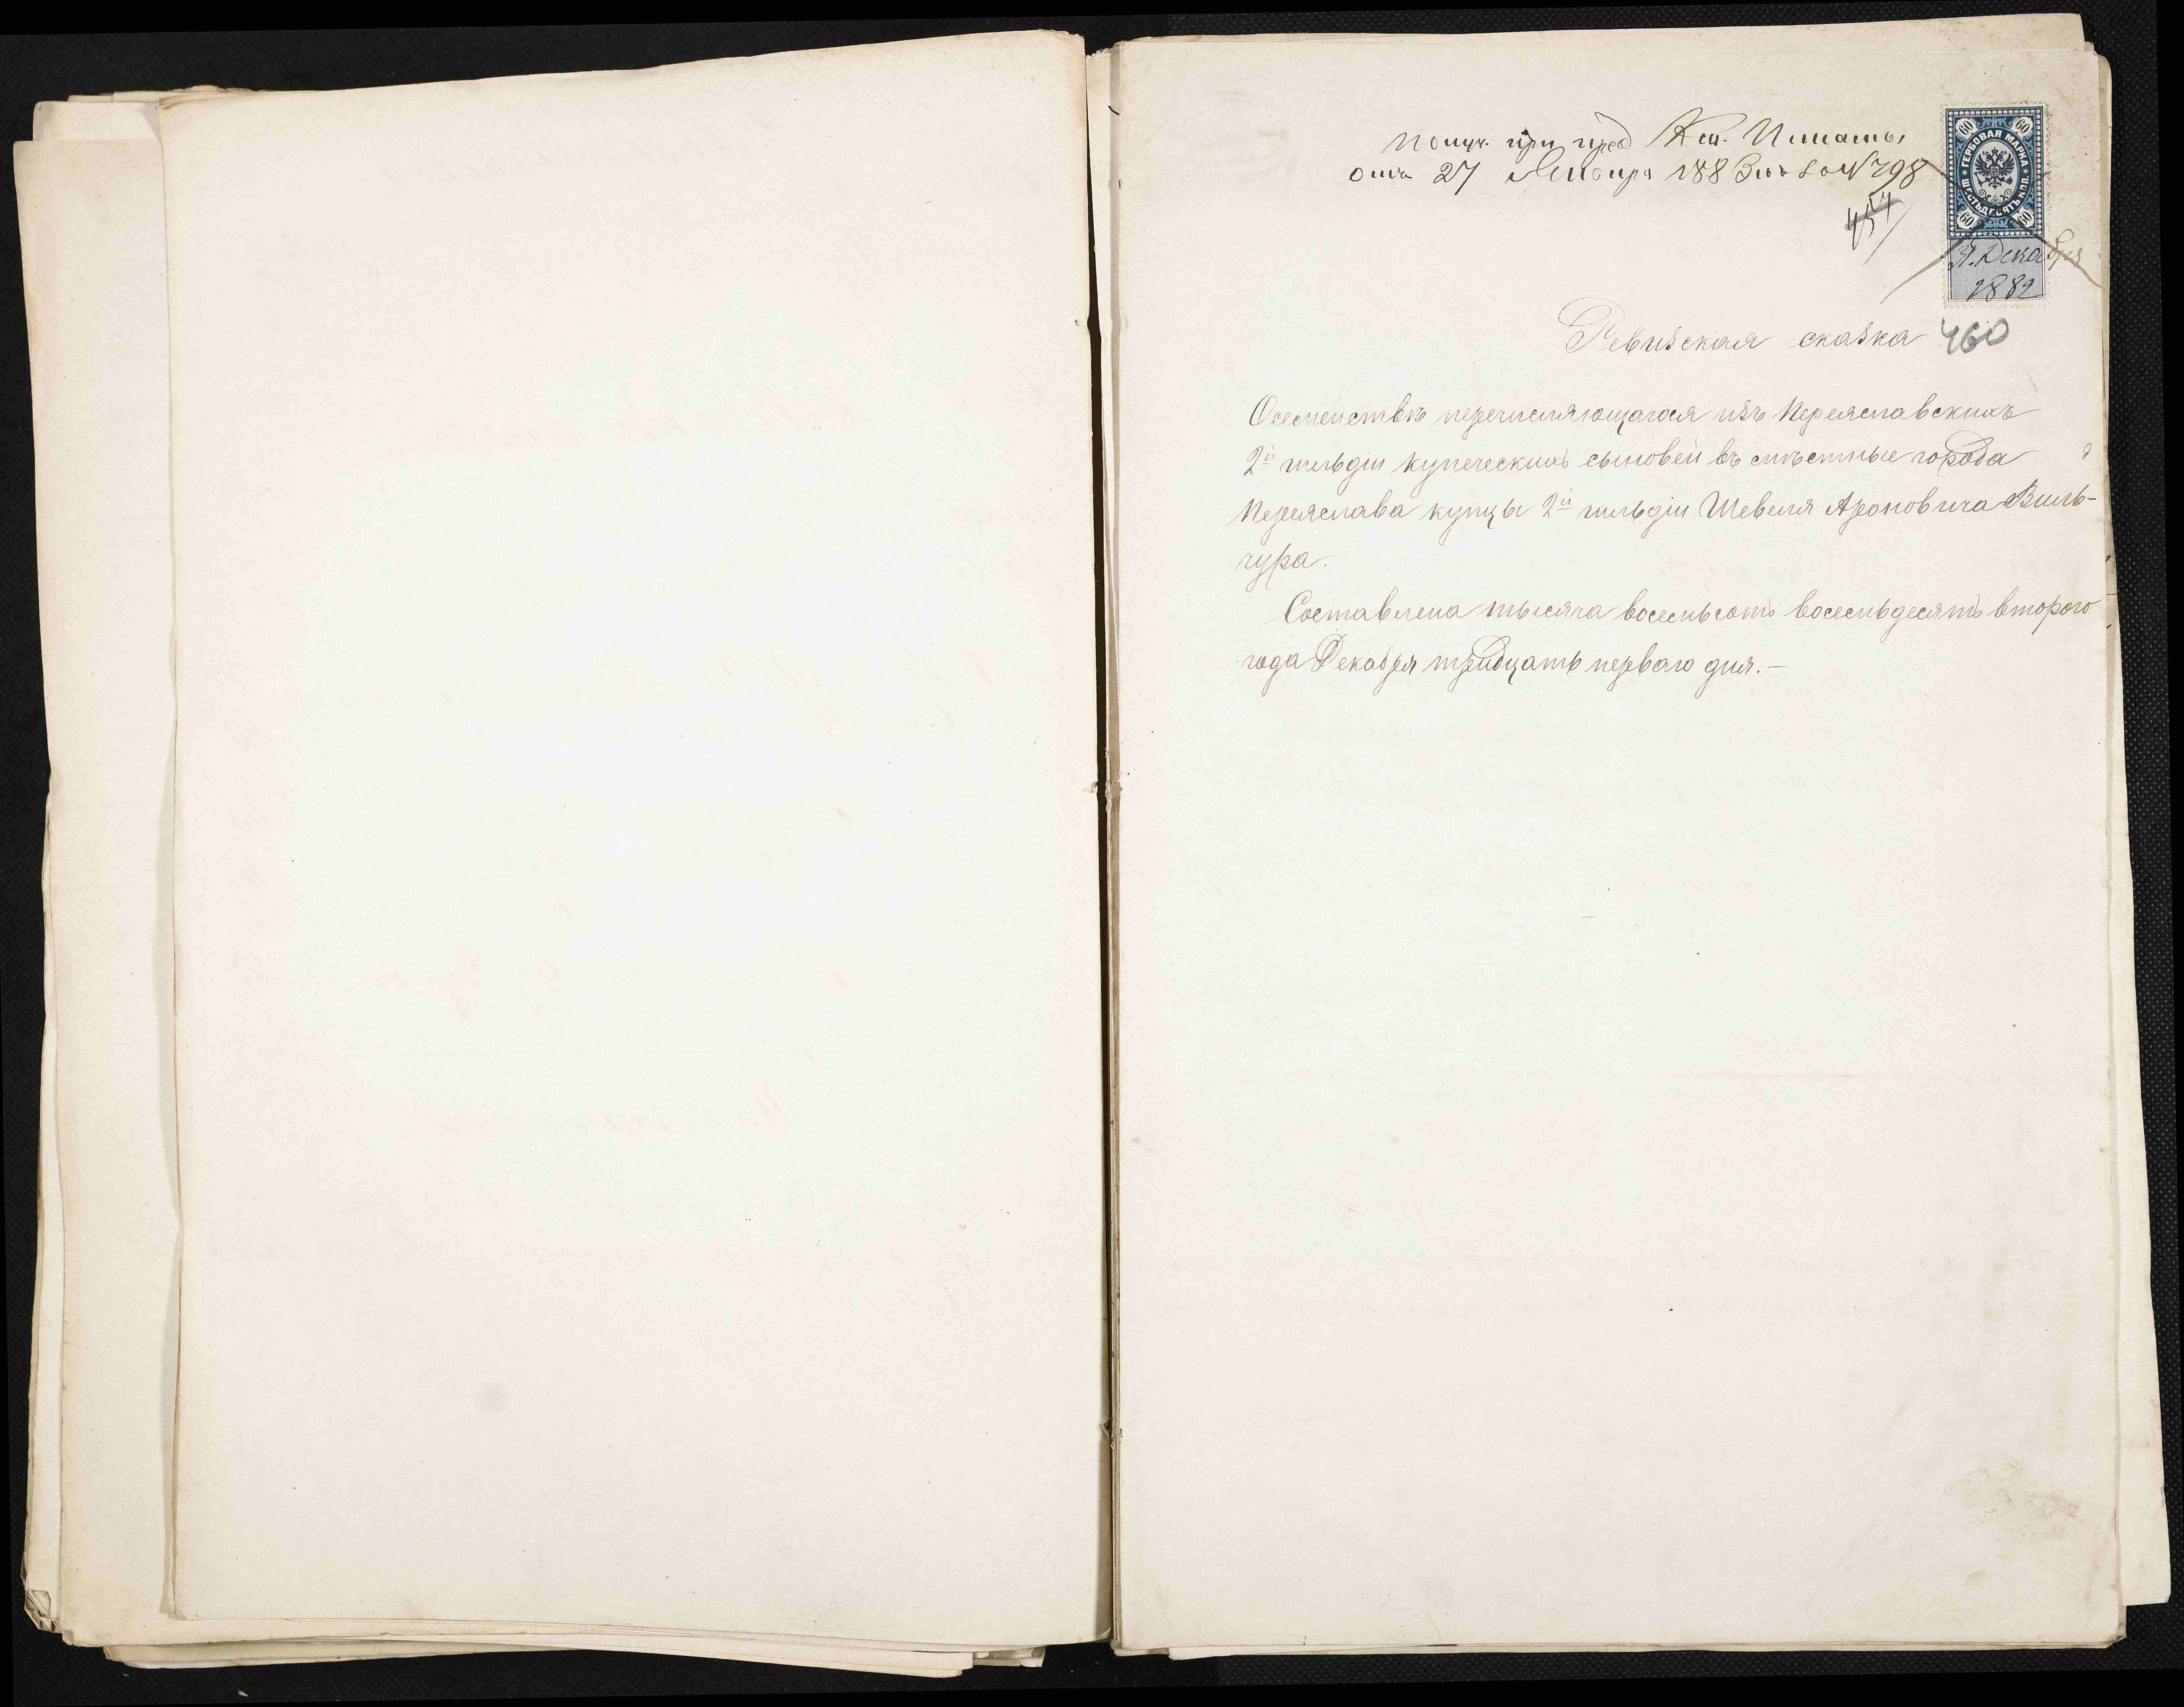 Получ. при пред Каз. Палаты
отъ 27 Января 1883 за № 798
454
60 60
ГЕРБОВАЯ МАРКА
ШЕСТЬДЕСЯТЬ КОП.
60 60
31. Декабря
1882
Ревизская сказка 460
О семействѣ перечисляющагося изъ Переяславскихъ
2й гильдіи купеческихъ сыновей въ мѣстные города
Переяслава купцы 2й гильдіи Шевеля Ароновича Виль-
чура.
Составлена тысяча восемьсотъ восемьдесятъ второго
года Декабря тридцать перваго дня.—